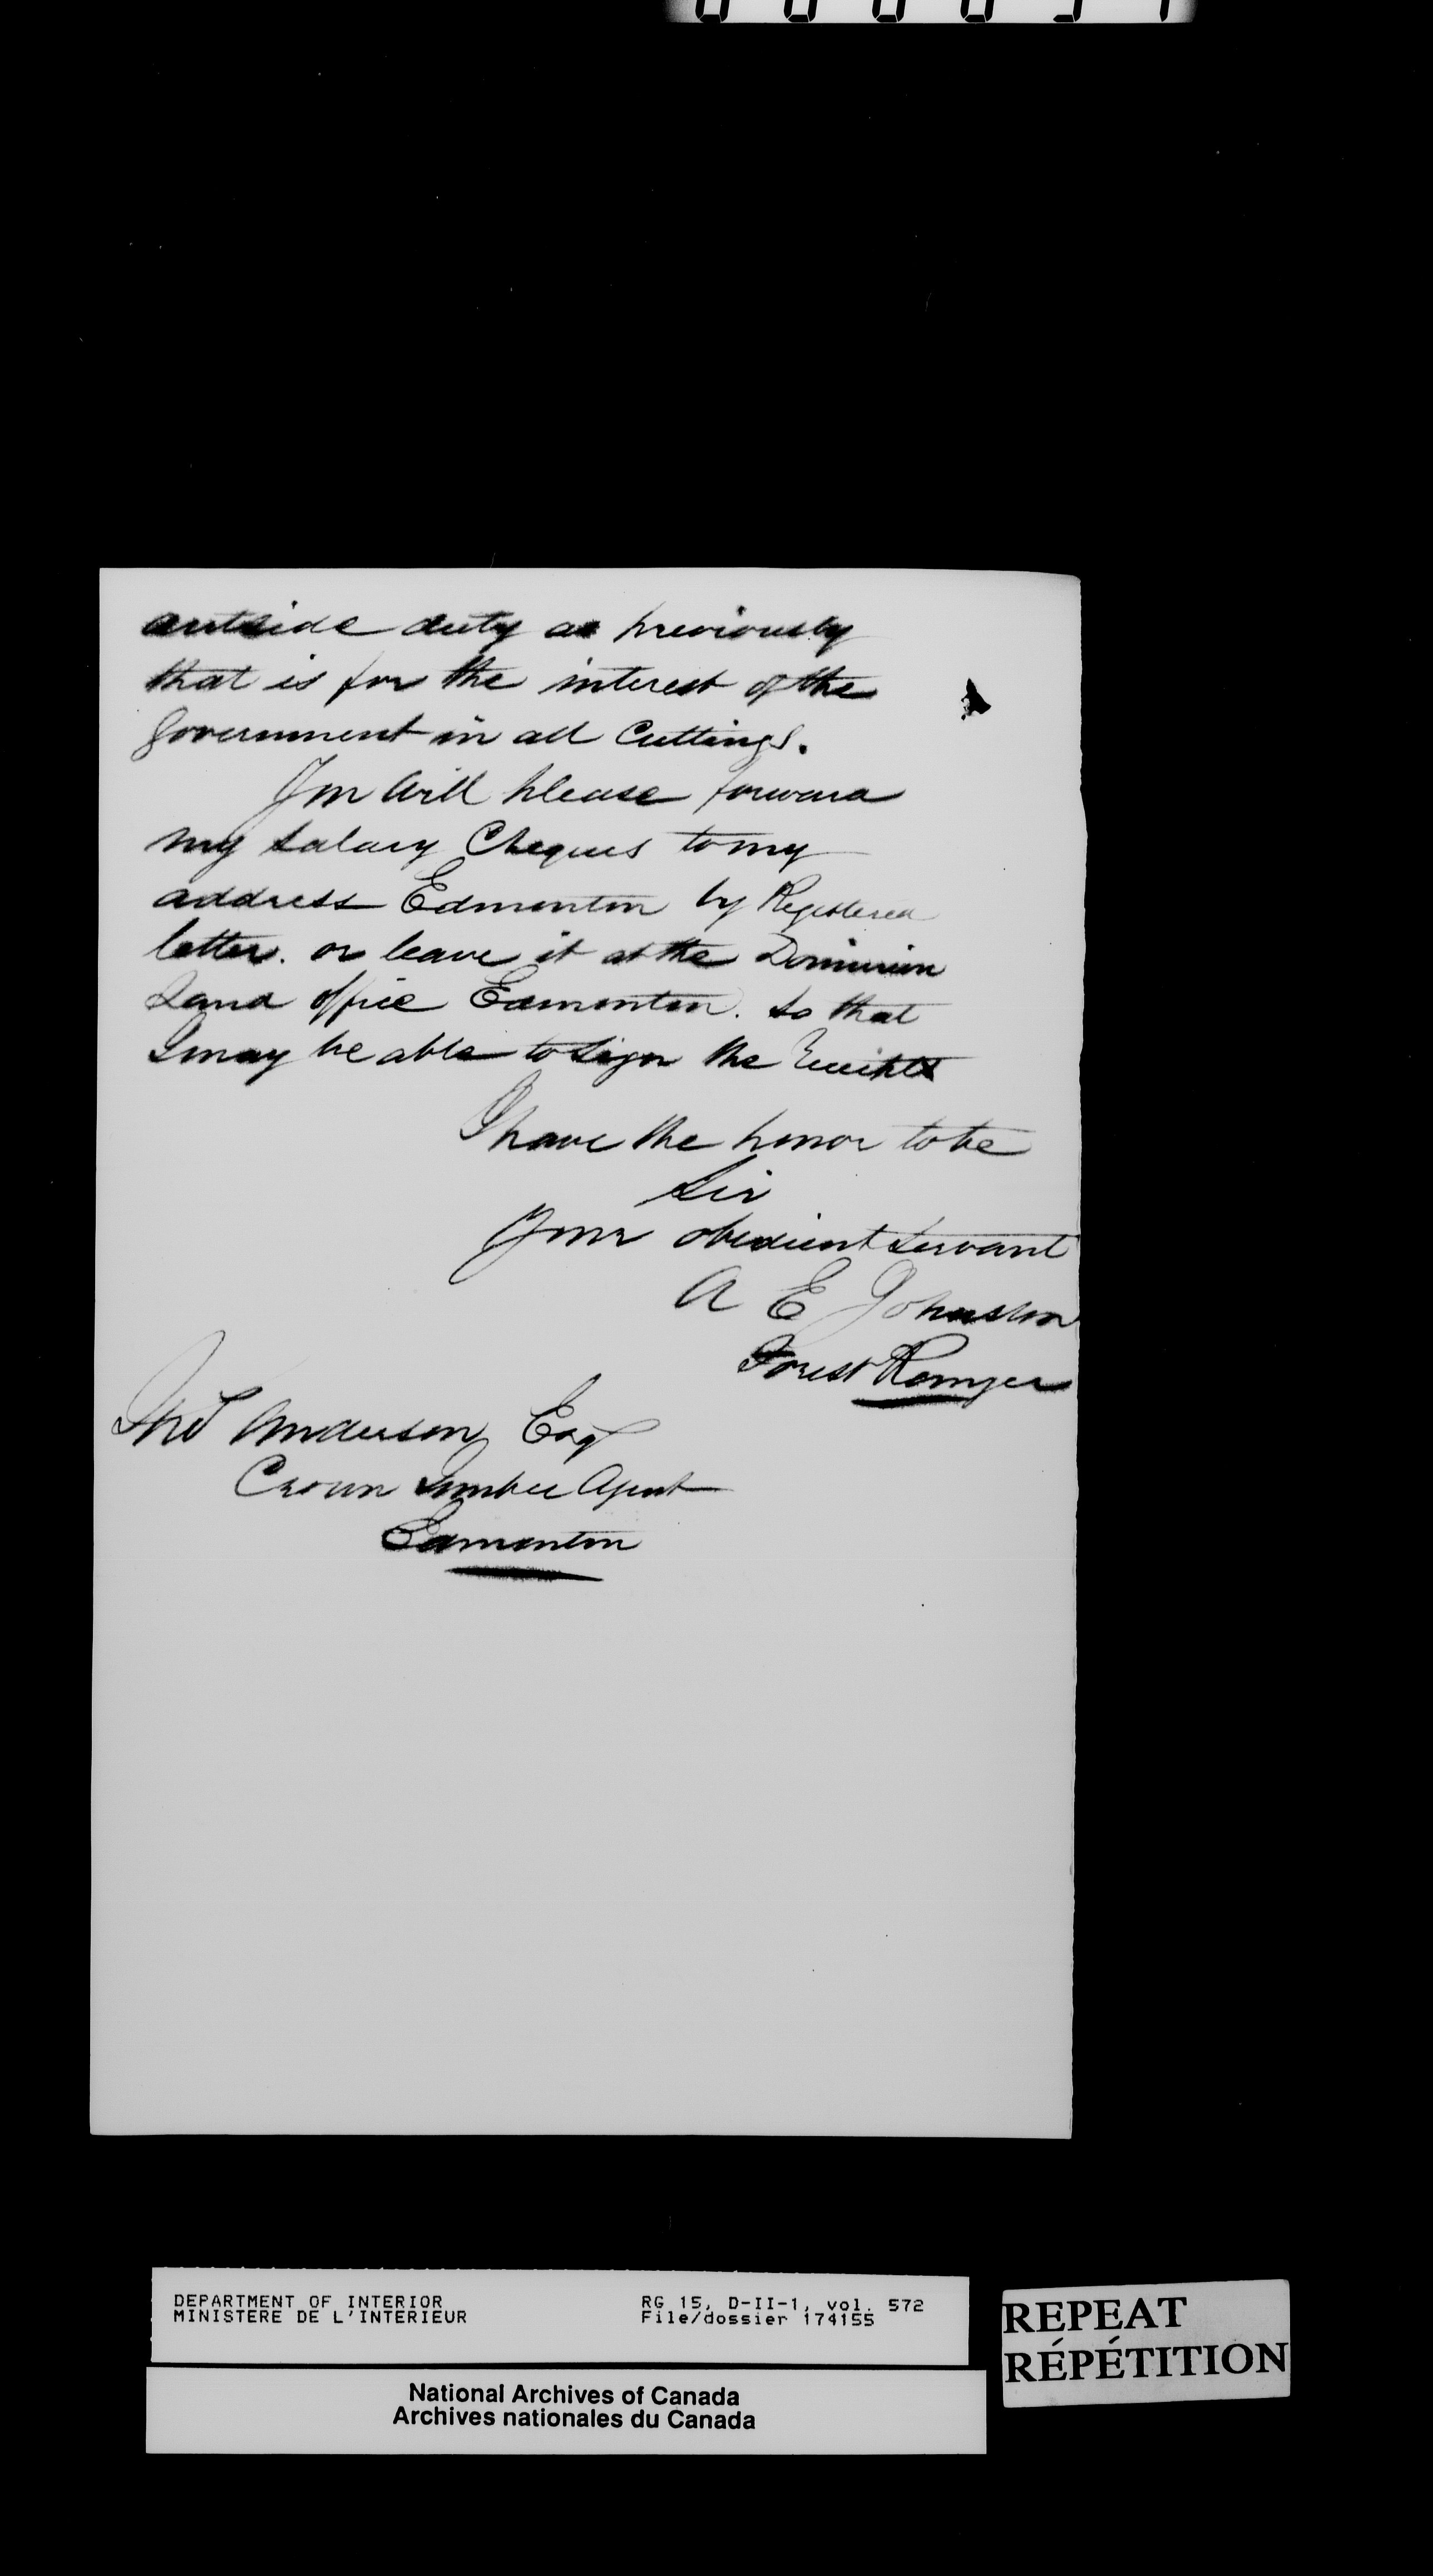 outside duty as previously
that is for the interest of the
Government in all Cuttings.
You will please forward
my salary Cheques to my
address Edmonton by Registered
letter. or leave it at the Dominion
Land office Edmonton. so that
I may be able to sign the
I have the honor to be
Sir
Your obedient servant
A E Johnston
Forest Ranger
Anderson Esq
Crown Timber Agent
Edmonton
DEPARTMENT OF INTERIOR
MINISTERE DE L'INTERIEUR
RG 15, D-II-1, vol. 572
File/dossier 174155
REPEAT
RÉPÉTITION
National Archives of Canada
Archives nationales du Canada